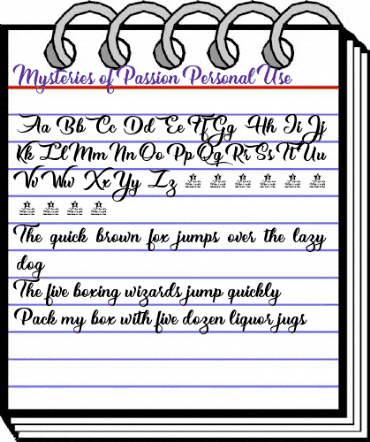 Mysteries of Passion Personal Use
Aa Bb Cc Dd Ee Ff Gg Hh Ii Jj
Kk Ll Mm Nn Oo Pp Qq Rr Ss Tt Uu
Vv Ww Xx Yy Zz
The quick brown fox jumps over the lazy
dog
The five boxing wizards jump quickly
Pack my box with five dozen liquor jugs